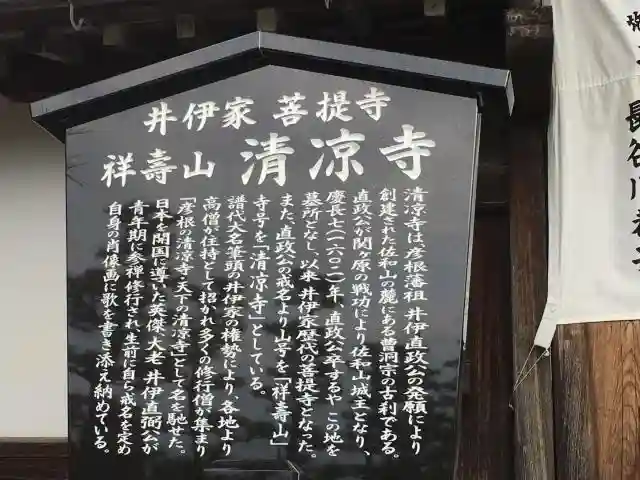 井伊家 菩提寺
祥壽山 清凉寺
清凉寺は、彦根藩祖 井伊直政公の発願により
創建された佐和山の麓にある曹洞宗の古刹である。
直政公が関ヶ原の戦功により佐和山城主となり、
慶長七(一六〇二)年、直政公卒するや この地を
墓所となし、以来 井伊家歴代の菩提寺となった。
また、直政公の戒名より山号を「祥壽山」
寺号を「清凉寺」としている。
譜代大名筆頭の井伊家の権勢により、各地より
高僧が住持として招かれ多くの修行僧が集まり
「彦根の清凉寺、天下の清凉寺」として名を馳せた。
日本を開国に導いた英傑、大老 井伊直弼公が
青年期に参禅修行され生前に自ら戒名を定め
自身の肖像画に歌を書き添え納めている。
長谷川